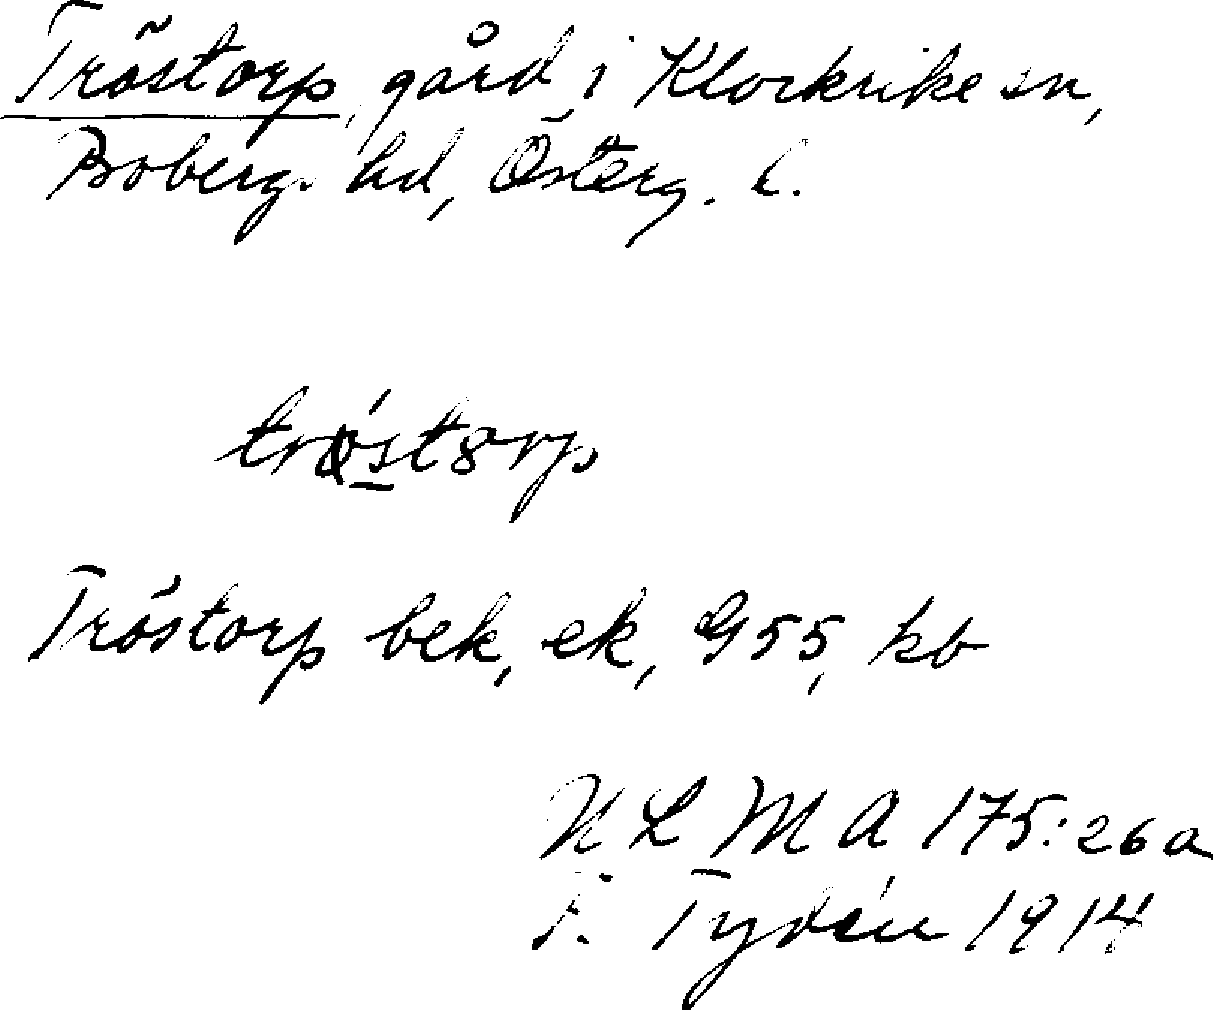 Tröstorp, gård i Klockrike sn,
Bobergs hd, Österg. l.
tröstorp
Tröstorp bek, ek, G55, kb
ULMA 175:26a
F. Tydén 1914